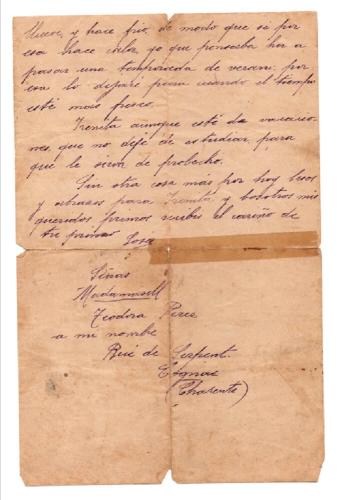 llueve, y hace frio, de modo que si por
esa hace calor, yo que pensaba hir a
pasar una temporada de verano; por
eso lo dejaré para cuando el tiempo
esté más fresco.
Irenita aunque esté de vacacio-
nes, que no deje de estudiar, para
que le sirva de probecho.
Sin otra cosa más por hoy besos
y abrazos para Irenita, y vosotros mis
queridos primos recibir el cariño de
tu prima
Señas
Madamasell
Teodora Perez
a mi nombre
Rue de Serpent.
Cognac
(Charente)